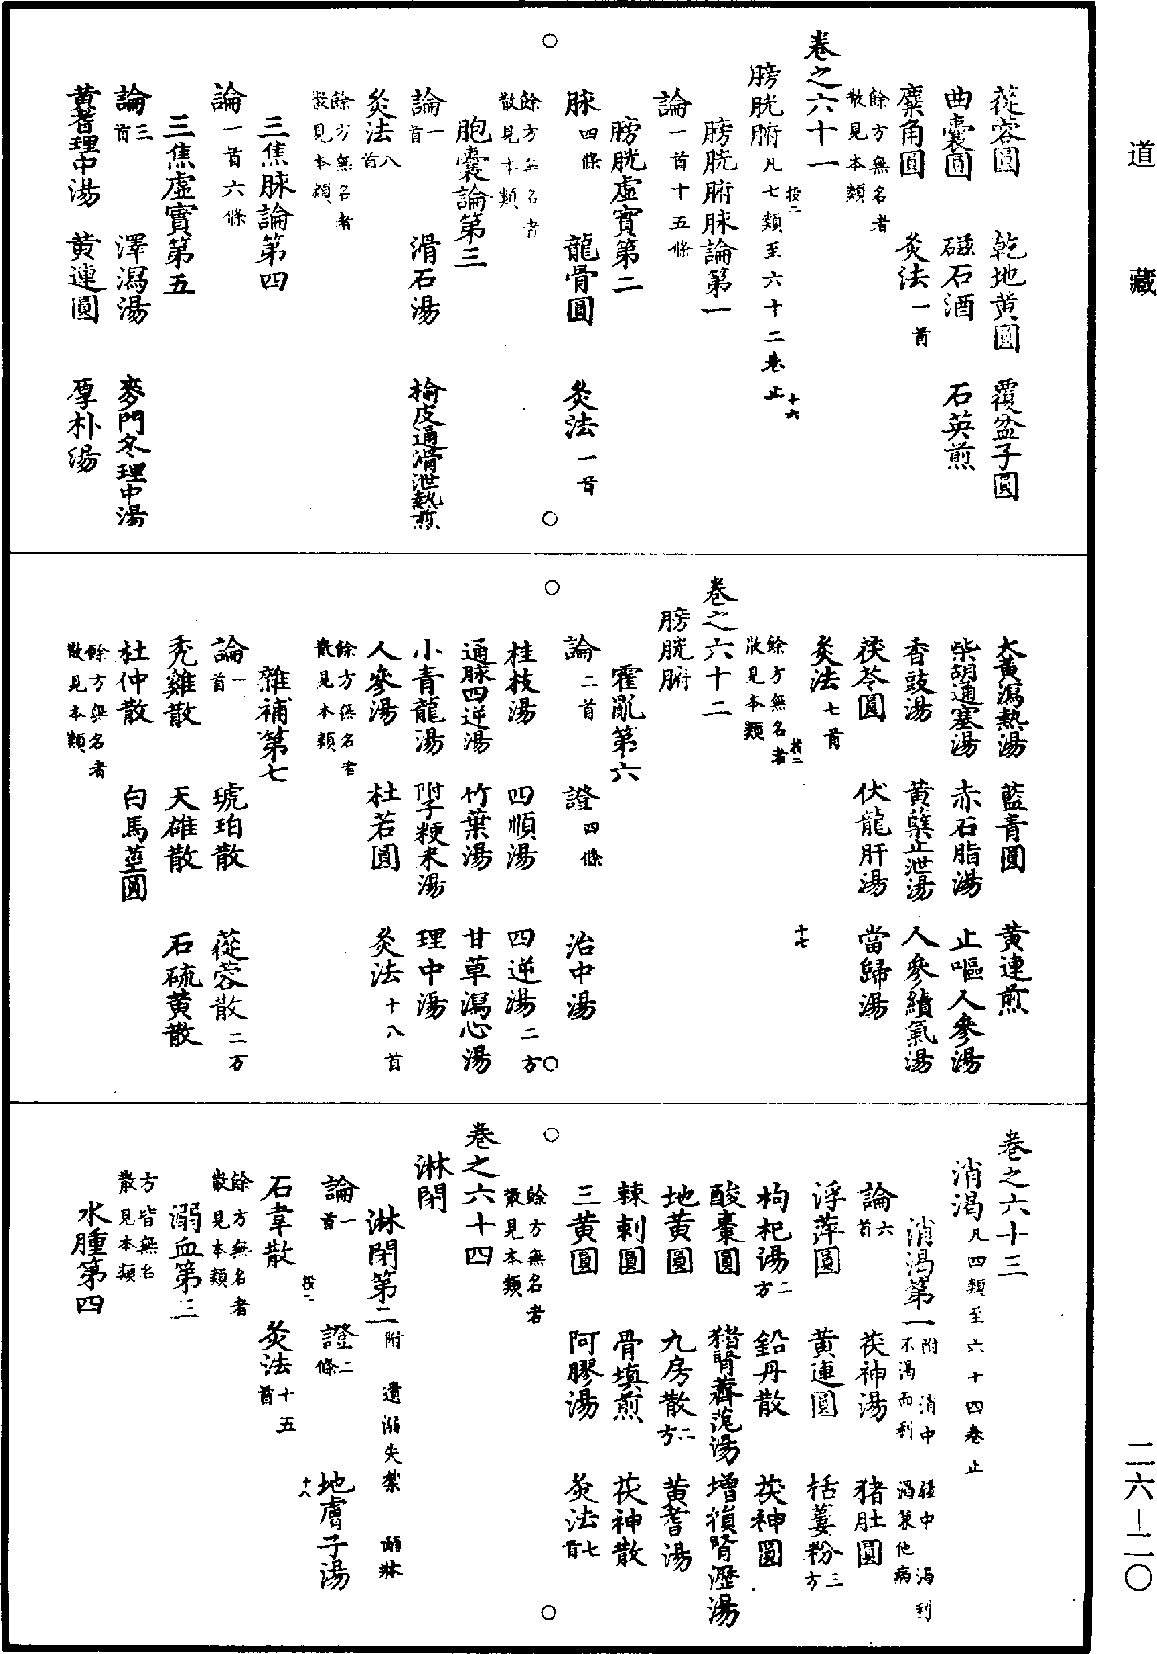 道藏
蓯蓉圓 乾地黄圓 覆盆子圓
曲囊圓 磁石酒 石英煎
麋角圓 灸法一首
餘方無名者散見本類
卷之六十一
膀胱腑凡七類至六十二卷止
投二 十六
膀胱腑脉論第一
論一首十五條
膀胱虛實第二
脉四條 龍骨圓 灸法一首
餘方無名者散見本類
胞囊論第三
論一首 滑石湯 榆皮通滑泄熱煎
灸法八首
餘方無名者散見本類
三焦脉論第四
論一首六條
三焦虛實第五
論三首 澤瀉湯 麥門冬理中湯
黄耆理中湯 黄連圓 厚朴湯
大黄瀉熱湯 藍青圓 黄連煎
柴胡通塞湯 赤石脂湯 止嘔人參湯
香豉湯 黄蘗止泄湯 人參續氣湯
茯苓圓 伏龍肝湯 當歸湯
灸法七首
投二 十七
餘方無名者散見本類
卷之六十二
膀胱腑
霍亂第六
論二首 證四條 治中湯
桂枝湯 四順湯 四逆湯二方
通脉四逆湯 竹葉湯 甘草瀉心湯
小青龍湯 附子粳米湯 理中湯
人參湯 杜若圓 灸法十八首
餘方無名者散見本類
雜補第七
論一首 琥珀散 蓯蓉散二方
禿雞散 天雄散 石硫黄散
杜仲散 白馬莖圓
餘方無名者散見本類
卷之六十三
消渴凡四類至六十四卷止
消渴第一附 消中 強中 渴利 不渴而利 渴兼他病
論六首 茯神湯 猪肚圓
浮萍圓 黄連圓 栝蔞粉三方
枸杞湯二方 鉛丹散 茯神圓
酸棗圓 猪腎薺苨湯 增損腎瀝湯
地黄圓 九房散二方 黄耆湯
棘刺圓 骨填煎 茯神散
三黄圓 阿膠湯 灸法七首
餘方無名者散見本類
卷之六十四
淋閉
淋閉第二附 遺溺失禁 尿床
論一首 證二條 地膚子湯
投二 十八
石韋散 灸法十五首
餘方無名者散見本類
溺血第三
方皆無名散見本類
水腫第四
二六-二〇